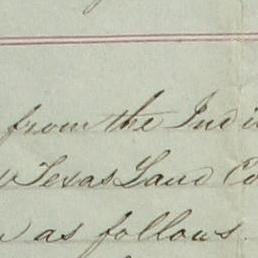 from the Indi
Texas Land Co
as follows.